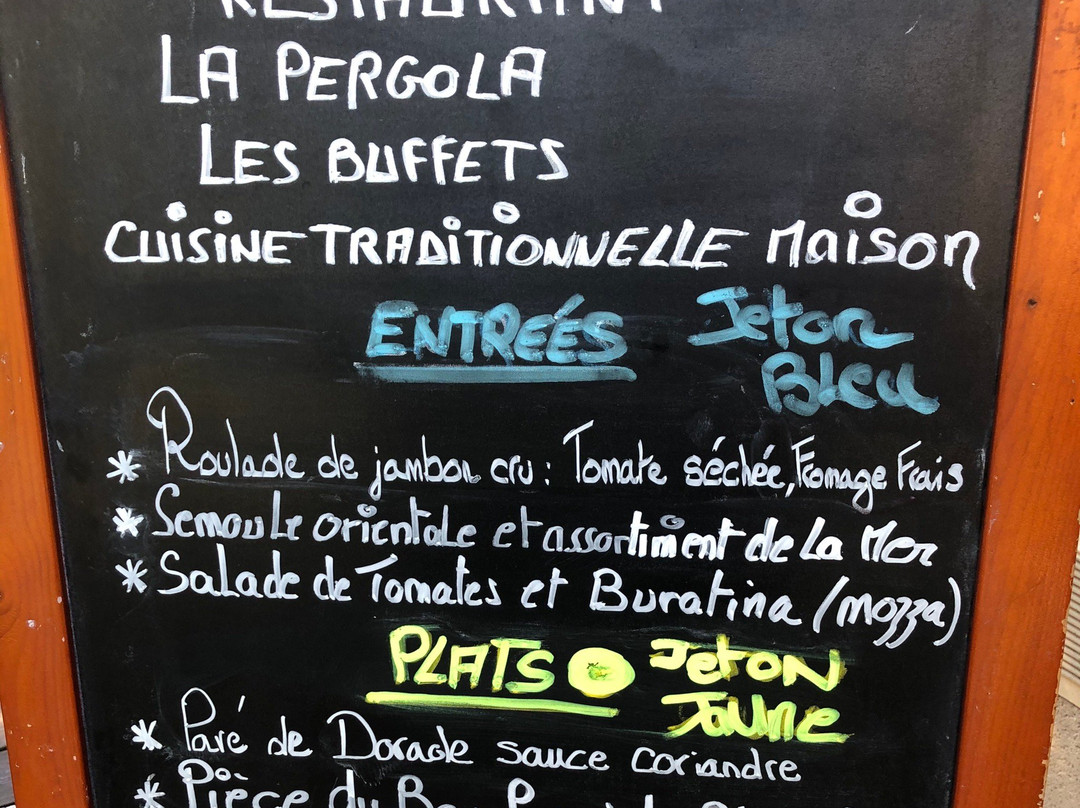 RESTAURANT
LA PERGOLA
LES BUFFETS
CUISINE TRADITIONNELLE MAISON
ENTREÉS Jeton
Bleu
* Roulade de jambon cru : Tomate séchée, Fromage Frais
* Semoule orientale et assortiment de La Mer
* Salade de Tomates et Buratina (mozza)
PLATS Jeton
Jaune
* Pavé de Dorade sauce coriandre
* Pièce du